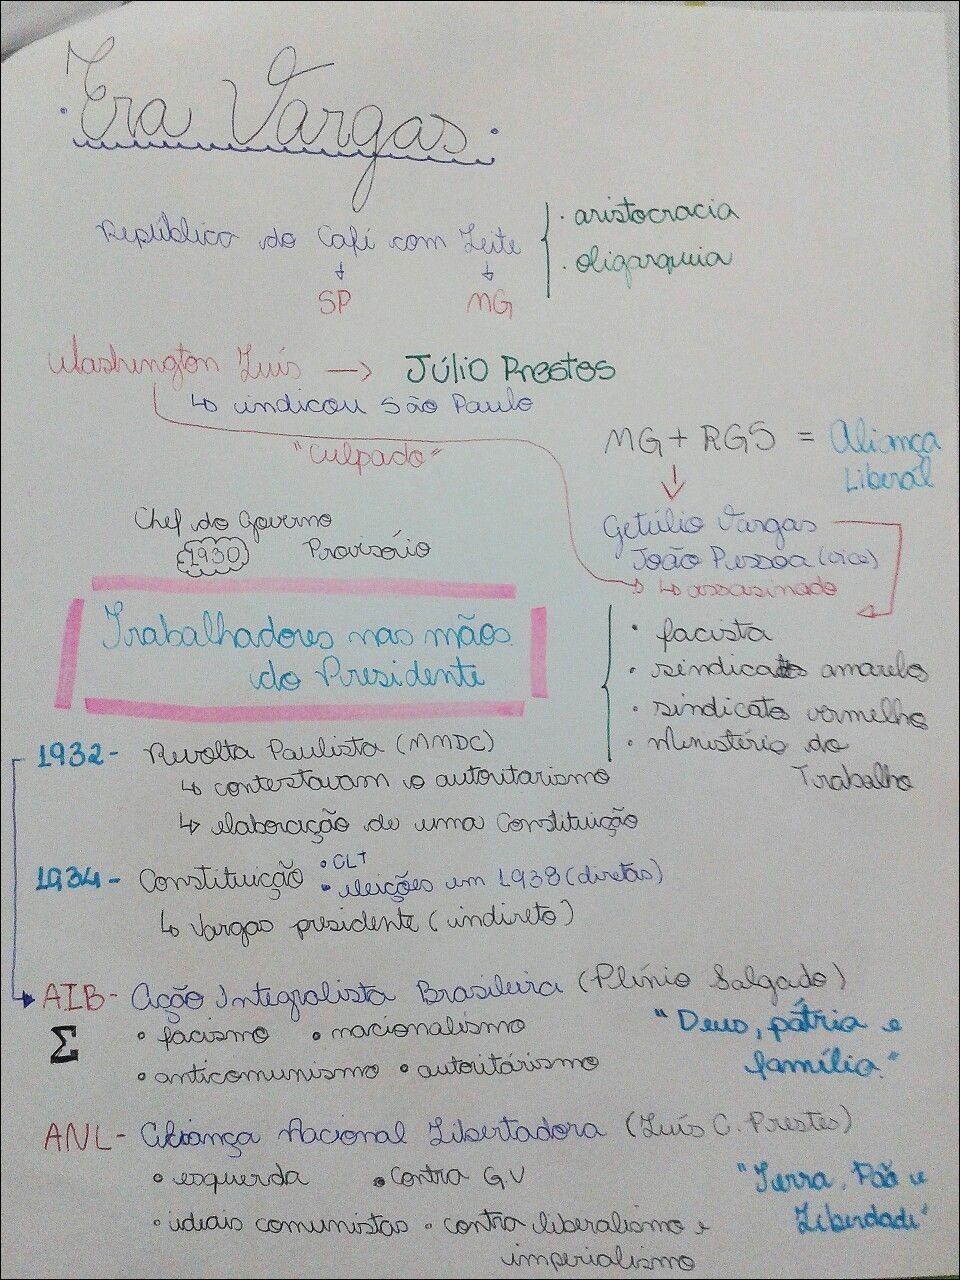 Era Vargas
República do Café com Leite
SP MG
· aristocracia
· oligarquia
Washington Luís → Júlio Prestes
↳ indicou São Paulo
"culpado"
MG + RGS = Aliança
Liberal
Getúlio Vargas
João Pessoa (vice)
↳ assasinado
Chef do Governo
1930 Provisório
Trabalhadores nas mãos
do Presidente
· facista
· sindicato amarelo
· sindicato vermelho
· Ministério do
Trabalho
1932- Revolta Paulista (MMDC)
↳ contestavam o autoritarismo
↳ elaboração de uma Constituição
1934- Constituição
• CLT
• eleições em 1938 (diretas)
↳ Vargas presidente (indireto)
AIB- Ação Integralista Brasileira (Plínio Salgado)
Σ
• facismo • nacionalismo
• anticomunismo • autoritárismo
"Deus, pátria e
família."
ANL- Aliança Nacional Libertadora (Luís C. Prestes)
• esquerda • contra G.V
• ideais comunistas • contra liberalismo e
imperialismo
"Terra, Pão e
Liberdade"